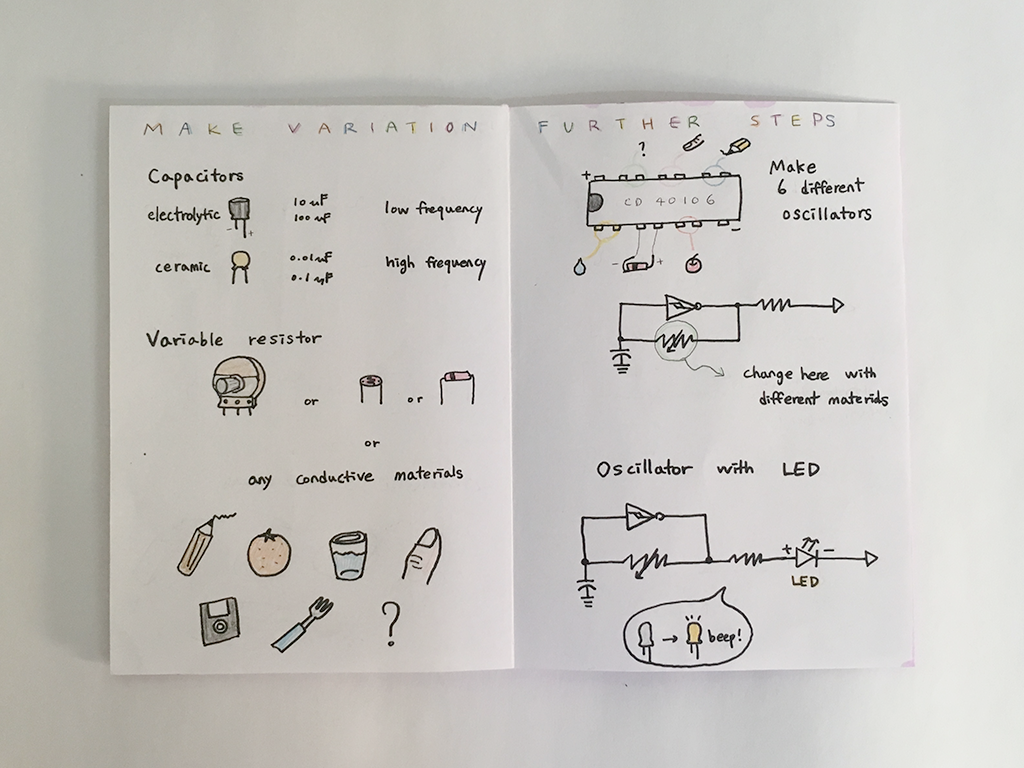 MAKE VARIATION
Capacitors
electrolytic
- +
10 uF
100 uF
low frequency
ceramic
0.01uF
0.1 uF
high frequency
Variable resistor
or
or
or
any conductive materials
?
FURTHER STEPS
?
+
CD 40106
-
- +
Make
6 different
oscillators
change here with
different materials
Oscillator with LED
+ -
LED
beep!